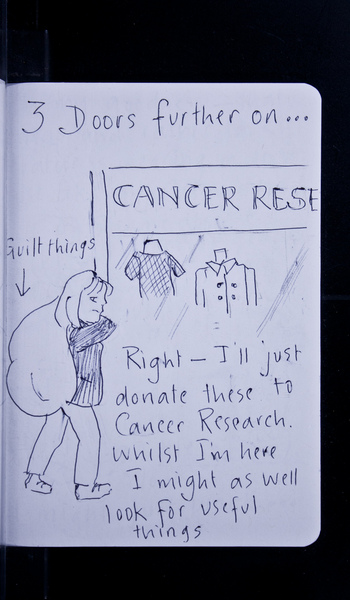 3 Doors further on...
CANCER RESE
Guilt things
Right – I'll just
donate these to
Cancer Research.
Whilst I'm here
I might as well
look for useful
things